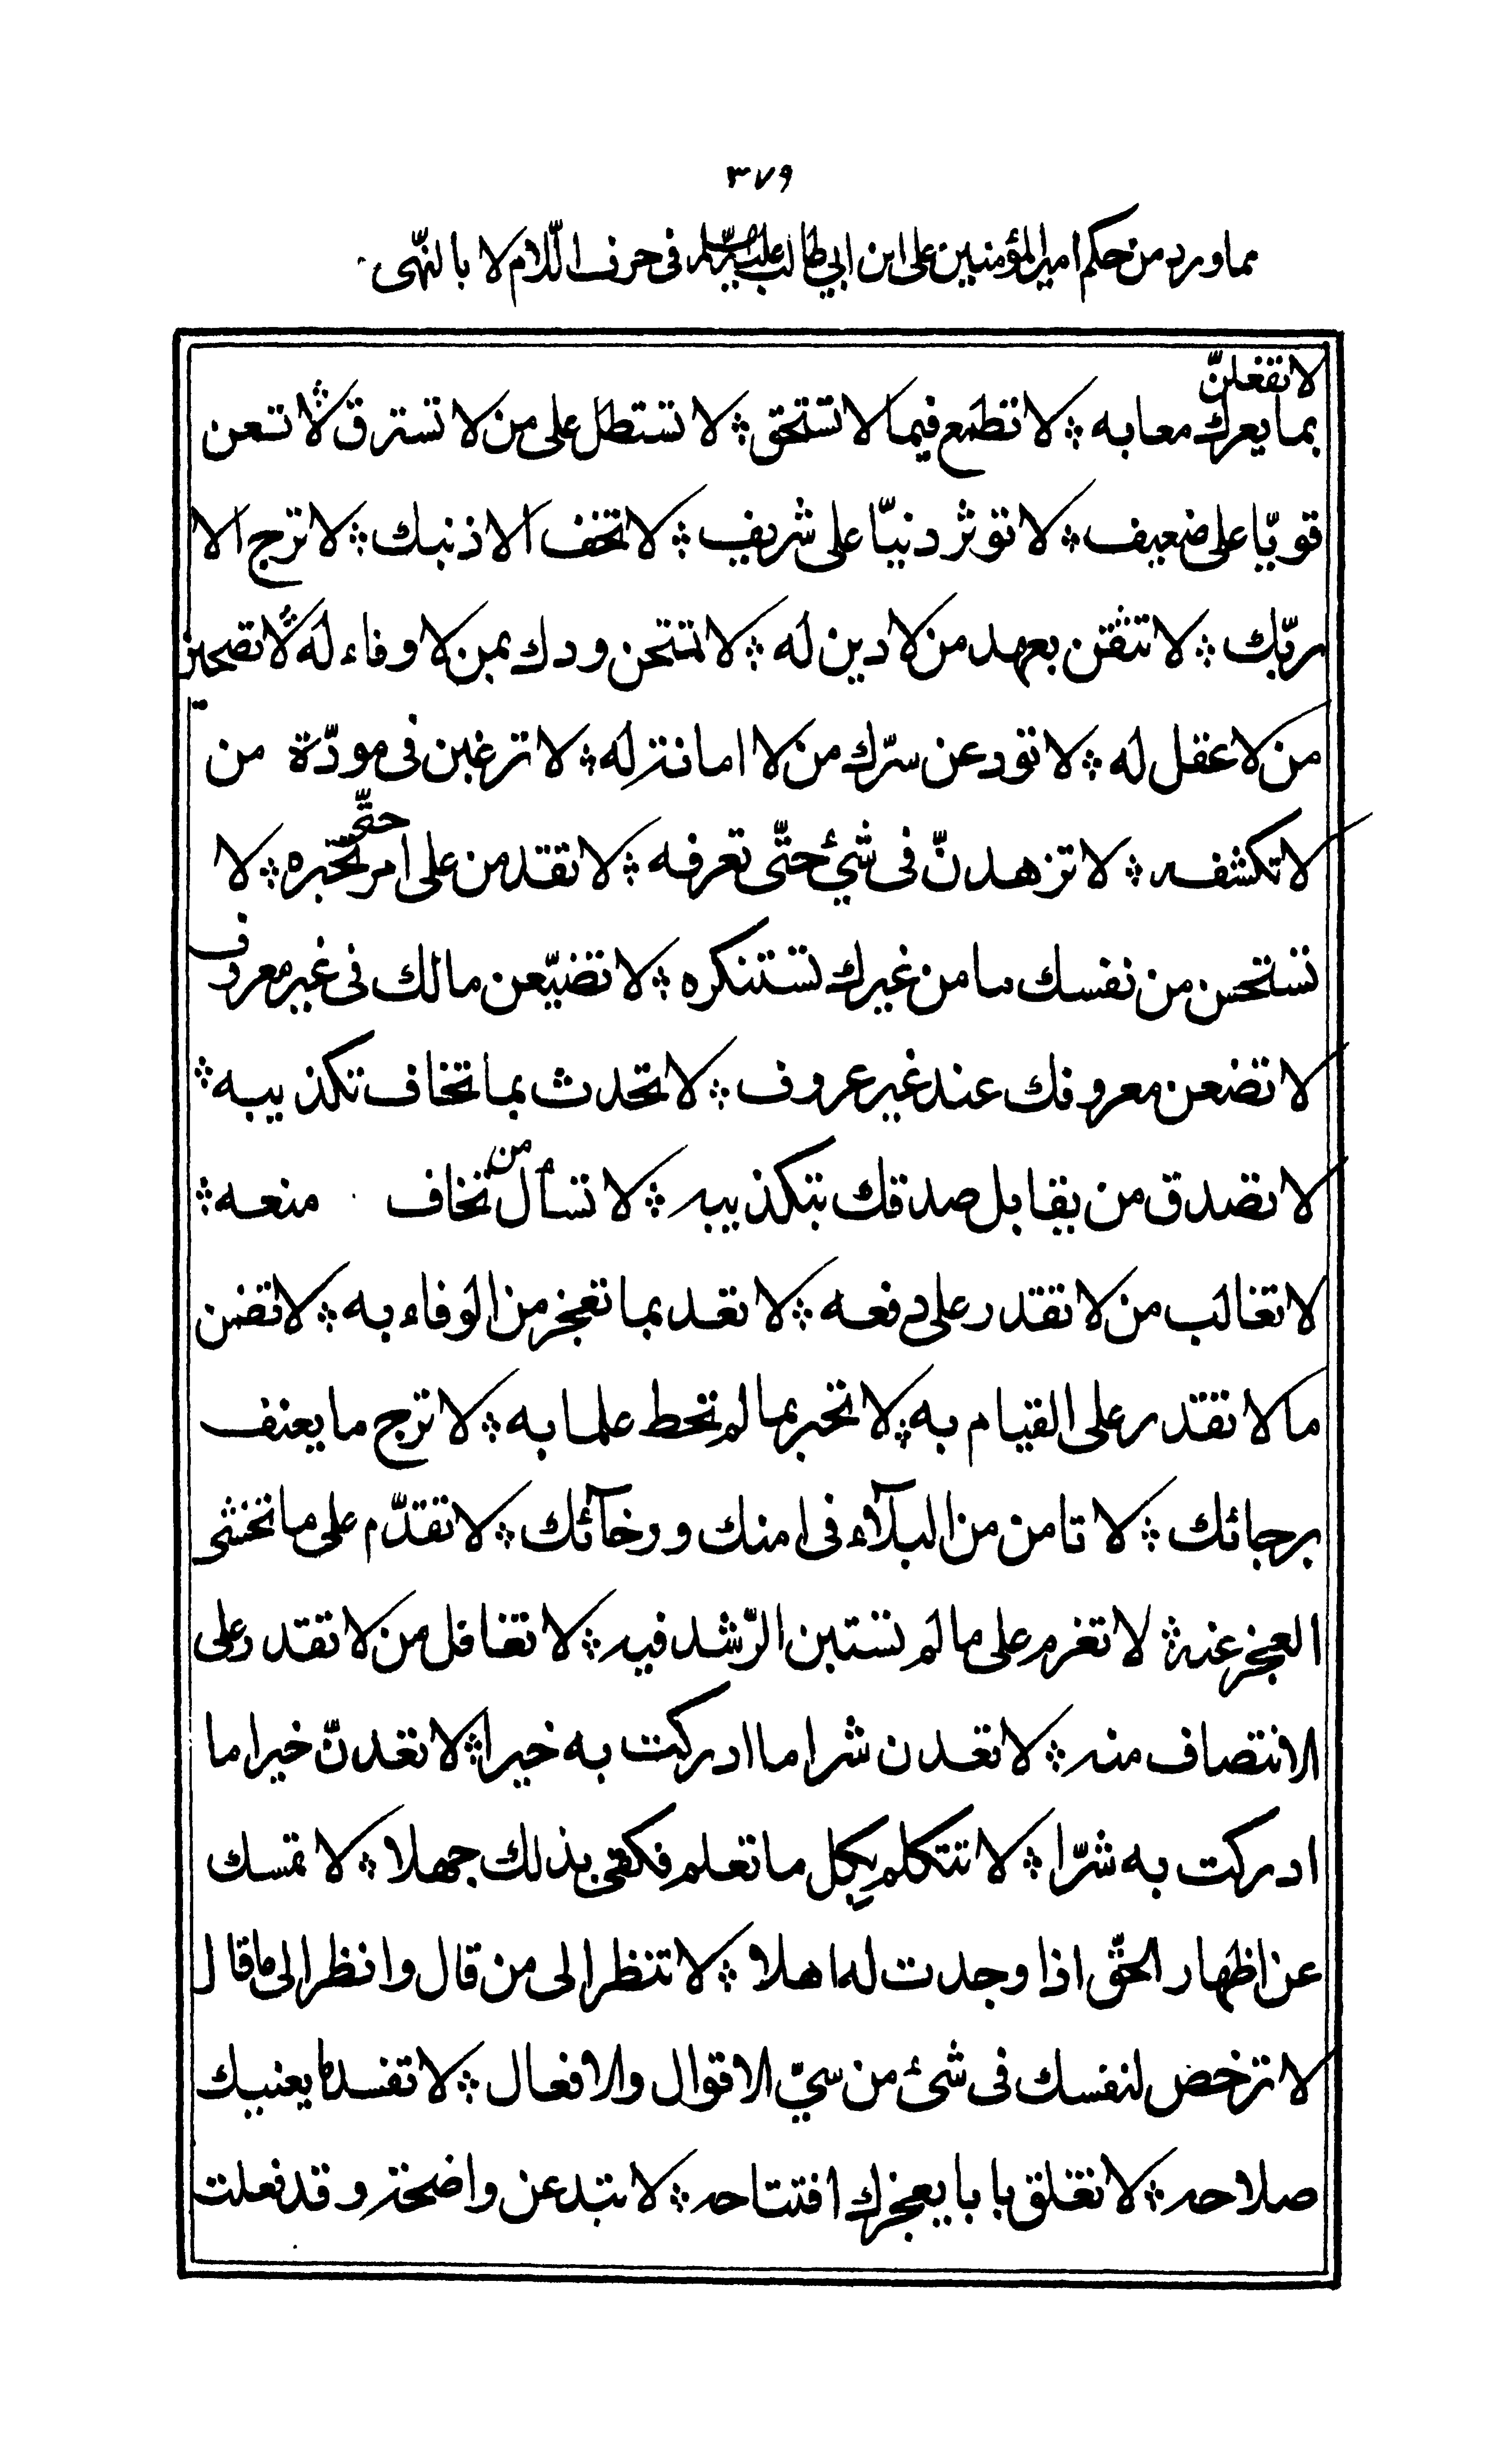 ٣٧٩
مما ورد من حكم امير المؤمنين على ابن ابي طالب عليه السّلام فى حرف اللّام لا بالنّهى
لا تفعلنّ
بما يعرك معابه ۞ لا تطمع فيما لا تستحق ۞ لا تستطل على من لا تسترق ۞ لا تعن
قويّا على ضعيف ۞ لا توثر دنيّا على شريف ۞ لا تخف الا ذنبك ۞ لا ترج الا
ربّك ۞ لا تثقن بعهد من لا دين له ۞ لا تمنحن ودك بمن لا وفاء له ۞ لا تصحبن
من لا عقل له ۞ لا تودعن سرّك من لا امانة له ۞ لا ترغبن فى مودّة من
لا تكشفه ۞ لا تزهدنّ فى شئ حتّى تعرفه ۞ لا تقدمن على امر حتّى تخبره ۞ لا
تستحسن من نفسك ما من غيرك تستنكره ۞ لا تضيّعن مالك فى غير معروف
لا تضعن معروفك عند غير عروف ۞ لا تحدث بما تخاف تكذيبه ۞
لا تصدق من يقابل صدقك بتكذيبه ۞ لا تسأل من تخاف منعه ۞
لا تغالب من لا تقدر على دفعه ۞ لا تعد بما تعجز من الوفاء به ۞ لا تضمن
ما لا تقدر على القيام به ۞ لا تخبر بما لم تحط علما به ۞ لا ترج ما يعنف
برجائك ۞ لا تامن من البلآء فى امنك و رخآئك ۞ لا تقدّم على ما تخشى
العجز عنه ۞ لا تعزم على ما لم تستبن الرّشد فيه ۞ لا تغافل من لا تقدر على
الانتصاف منه ۞ لا تعدن شرا ما ادركت به خيرا ۞ لا تعدنّ خيرا ما
ادركت به شرّا ۞ لا تتكلم بكل ما تعلم فكفى بذلك جهلا ۞ لا تمسك
عن اظهار الحقّ اذا وجدت له اهلا ۞ لا تنظر الى من قال وانظر الى ما قال
لا ترخص لنفسك فى شئ من سيّ الاقوال والافعال ۞ لا تفسد ما يعنيك
صلاحه ۞ لا تغلق بابا يعجزك افتتاحه ۞ لا تبد عن واضحة و قد فعلت